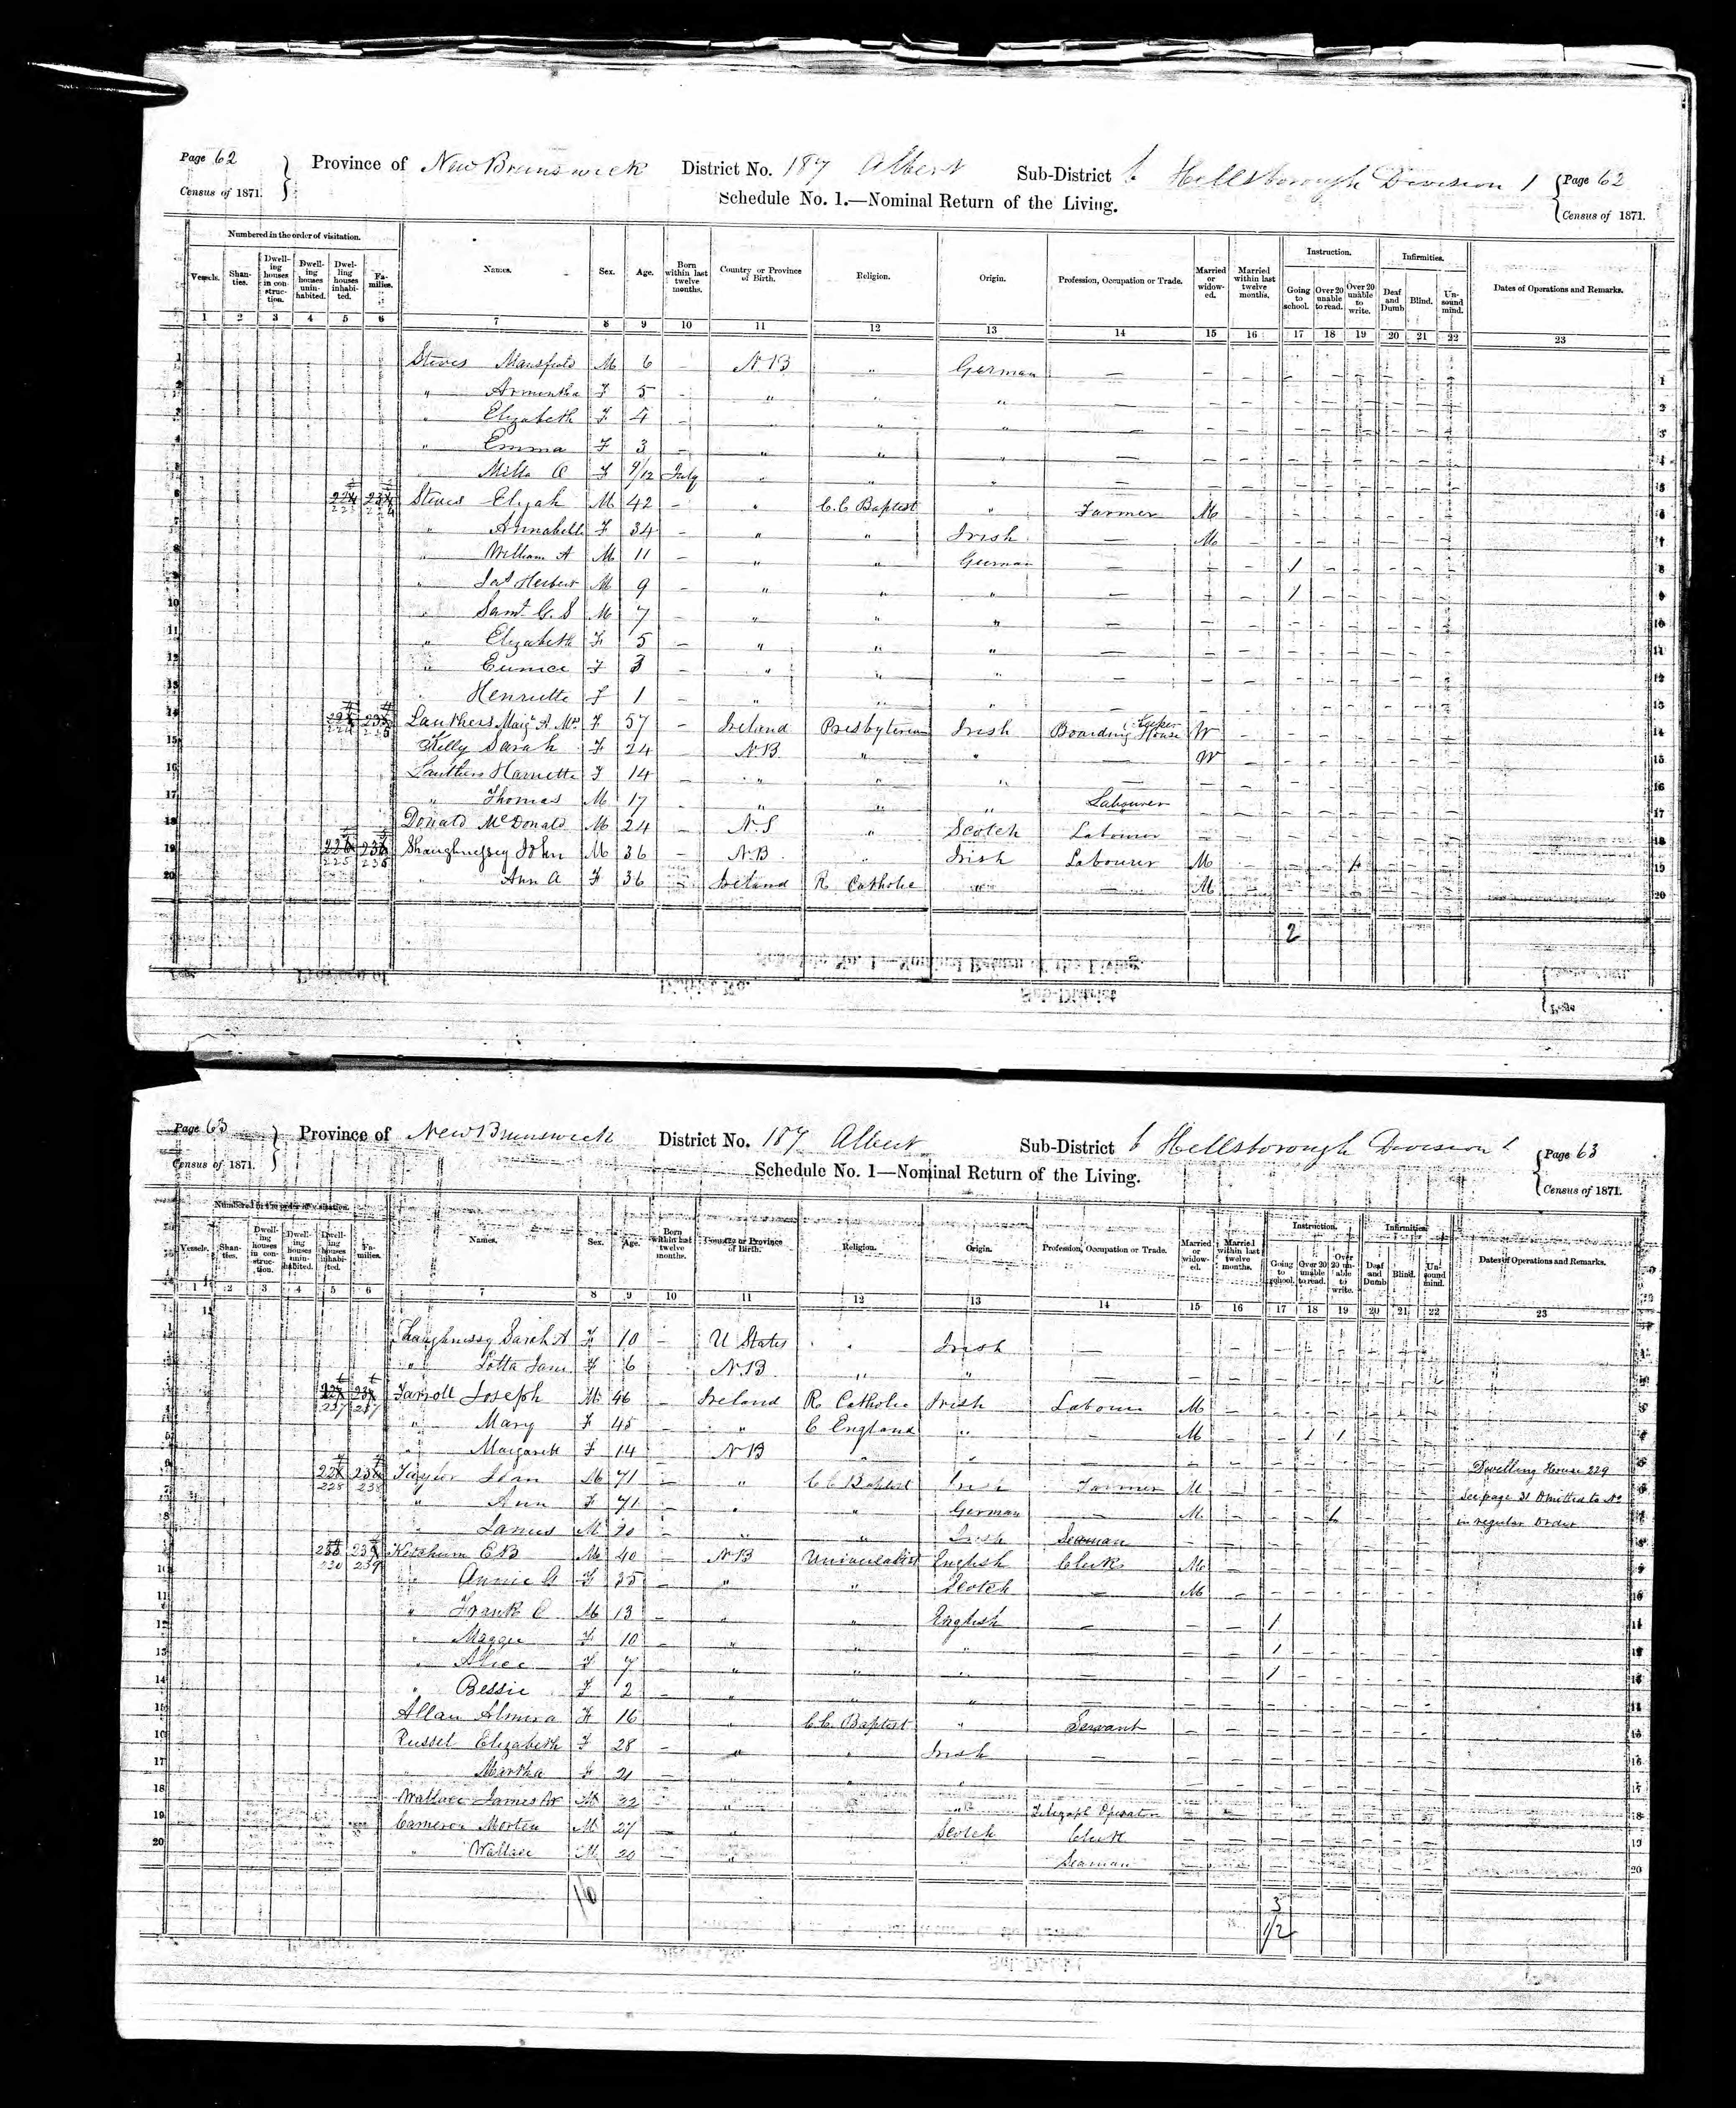 Page 62 Province of New Brunswick District No. 187 Albert Sub-District b Hillsborough Division 1 Page 62
Census of 1871. Schedule No. 1.—Nominal Return of the Living. Census of 1871.
Numbered in the order of visitation. Instruction. Infirmities.
Vessels. Shanties. Dwelling houses in construction. Dwelling houses uninhabited. Dwelling houses inhabited. Families. Names. Sex. Age. Born within last twelve months. Country or Province of Birth. Religion. Origin. Profession, Occupation or Trade. Married or widowed. Married within last twelve months. Going to school. Over 20 unable to read. Over 20 unable to write. Deaf and Dumb Blind. Unsound mind. Dates of Operations and Remarks.
1 2 3 4 5 6 7 8 9 10 11 12 13 14 15 16 17 18 19 20 21 22 23
1 Steves Mansfield M 6 – N B " German — – – – – – – – – 1
2 " Armintha F 5 – " " " — – – – – – – – – 2
3 " Elizabeth F 4 – " " " — – – – – – – – – 3
4 " Emma F 3 – " " " — – – – – – – – – 4
5 " F 9/12 July " " " — – – – – – – – – 5
6 223 Steves Elijah M 42 – " C. C Baptist " Farmer M – – – – – – – 6
7 " Annabella F 34 – " " Irish — M – – – – – – – 7
8 " William A M 11 – " " German — – – 1 – – – – – 8
9 " Jas Herbert M 9 – " " " — – – 1 – – – – – 9
10 " Saml G. S M 7 – " " " — – – – – – – – – 10
11 " Elizabeth F 5 – " " " — – – – – – – – – 11
12 " Eunice F 3 – " " " — – – – – – – – – 12
13 " Henriette F 1 – " " " — – – – – – – – – 13
14 224 235 Lauthers Margt A Mrs F 57 – Ireland Presbyterian Irish Boarding House Keeper W – – – – – – – 14
15 Kelly Sarah F 24 – N B " " — W – – – – – – – 15
16 Lauthers Harriette F 14 – " " " — – – – – – – – – 16
17 " Thomas M 17 – " " " Labourer – – – – – – – – 17
18 Donald McDonald M 24 – N. S " Scotch Labourer – – – – – – – – 18
19 225 236 Shaughnessy John M 36 – N. B " Irish Labourer M – – – 1 – – – 19
20 " Ann A F 36 – Ireland R Catholic " — M – – – – – – – 20
2
Page 63 Province of New Brunswick District No. 187 Albert Sub-District b Hillsborough Division 1 Page 63
Census of 1871. Schedule No. 1—Nominal Return of the Living. Census of 1871.
Numbered in the order of visitation. Instruction. Infirmities.
Vessels. Shanties. Dwelling houses in construction. Dwelling houses uninhabited. Dwelling houses inhabited. Families. Names. Sex. Age. Born within last twelve months. Country or Province of Birth. Religion. Origin. Profession, Occupation or Trade. Married or widowed. Married within last twelve months. Going to school. Over 20 unable to read. Over 20 unable to write. Deaf and Dumb Blind. Unsound mind. Dates of Operations and Remarks.
1 2 3 4 5 6 7 8 9 10 11 12 13 14 15 16 17 18 19 20 21 22 23
1 Shaughnessy Sarah A F 10 – U States " Irish — – – – – – – – – 1
2 " Lotta Jane F 6 N. B " " — – – – – – – – – 2
3 227 237 Farroll Joseph M 46 – Ireland R Catholic Irish Labourer M – – – – – – – 3
4 " Mary F 45 – " C England " — M – – 1 1 – – – 4
5 " Margarett F 14 – N B " " — – – – – – – – – Dwelling House 229 5
6 228 238 Taylor M 71 – " C C Baptist Irish Farmer M – – – – – – – See page 21 Omitted to No 6
7 " Ann F 71 – " " German — M – – – 1 – – – in regular Order 7
8 " James M 20 – " " Irish Seaman – – – – – – – – 8
9 230 239 Ketchum E B M 40 – N B Universalist English Clerk M – – – – – – – 9
10 " Annie G F 35 – " " Scotch — M – – – – – – – 10
11 " Frank C M 13 – " " English — – – 1 – – – – – 11
12 " Maggie F 10 – " " " — – – 1 – – – – – 12
13 " Alice F 7 – " " " — – – 1 – – – – – 13
14 " Bessie F 2 – " " " — – – – – – – – – 14
15 Allan Almira F 16 " C C Baptist " Servant – – – – – – – – 15
16 Russel Elizabeth F 28 – " " Irish — – – – – – – – – 16
17 " Martha F 21 – " " " — – – – – – – – – 17
18 Wallace James W M 22 – " " " Telegraph Operator – – – – – – – – 18
19 Cameron Morton M 27 – " " Scotch Clerk – – – – – – – – 19
20 " Wallace M 20 – " " " Seaman – – – – – – – – 20
10 3
1/2